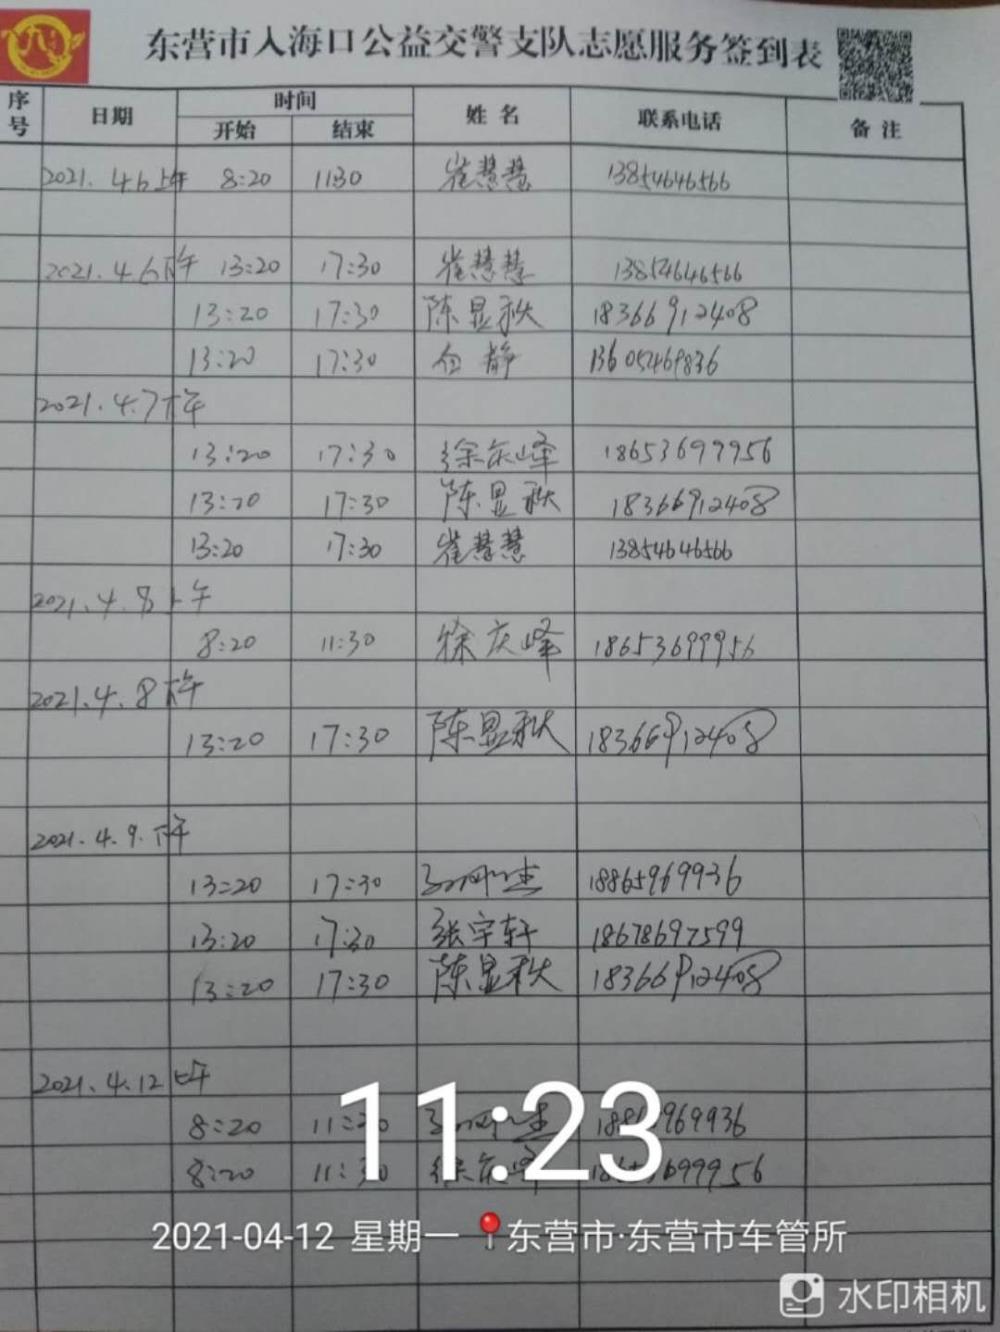 东营市入海口公益交警支队志愿服务签到表
序号 日期 时间 姓名 联系电话 备注
开始 结束
2021.4.6上午 8:20 11:30 崔慧慧 13854646566
2021.4.6下午 13:20 17:30 崔慧慧 13854646566
13:20 17:30 陈显秋 18366912408
13:20 17:30 白静 13605469836
2021.4.7下午
13:20 17:30 徐庆峰 18653699956
13:20 17:30 陈显秋 18366912408
13:20 17:30 崔慧慧 13854646566
2021.4.8上午
8:20 11:30 徐庆峰 18653699956
2021.4.8下午
13:20 17:30 陈显秋 18366912408
2021.4.9.下午
13:20 17:30 18865969936
13:20 17:30 张宇轩 18678697599
13:20 17:30 陈显秋 18366912408
2021.4.12上午
8:20
8:20 11:30
11:23
2021-04-12 星期一 东营市·东营市车管所
水印相机